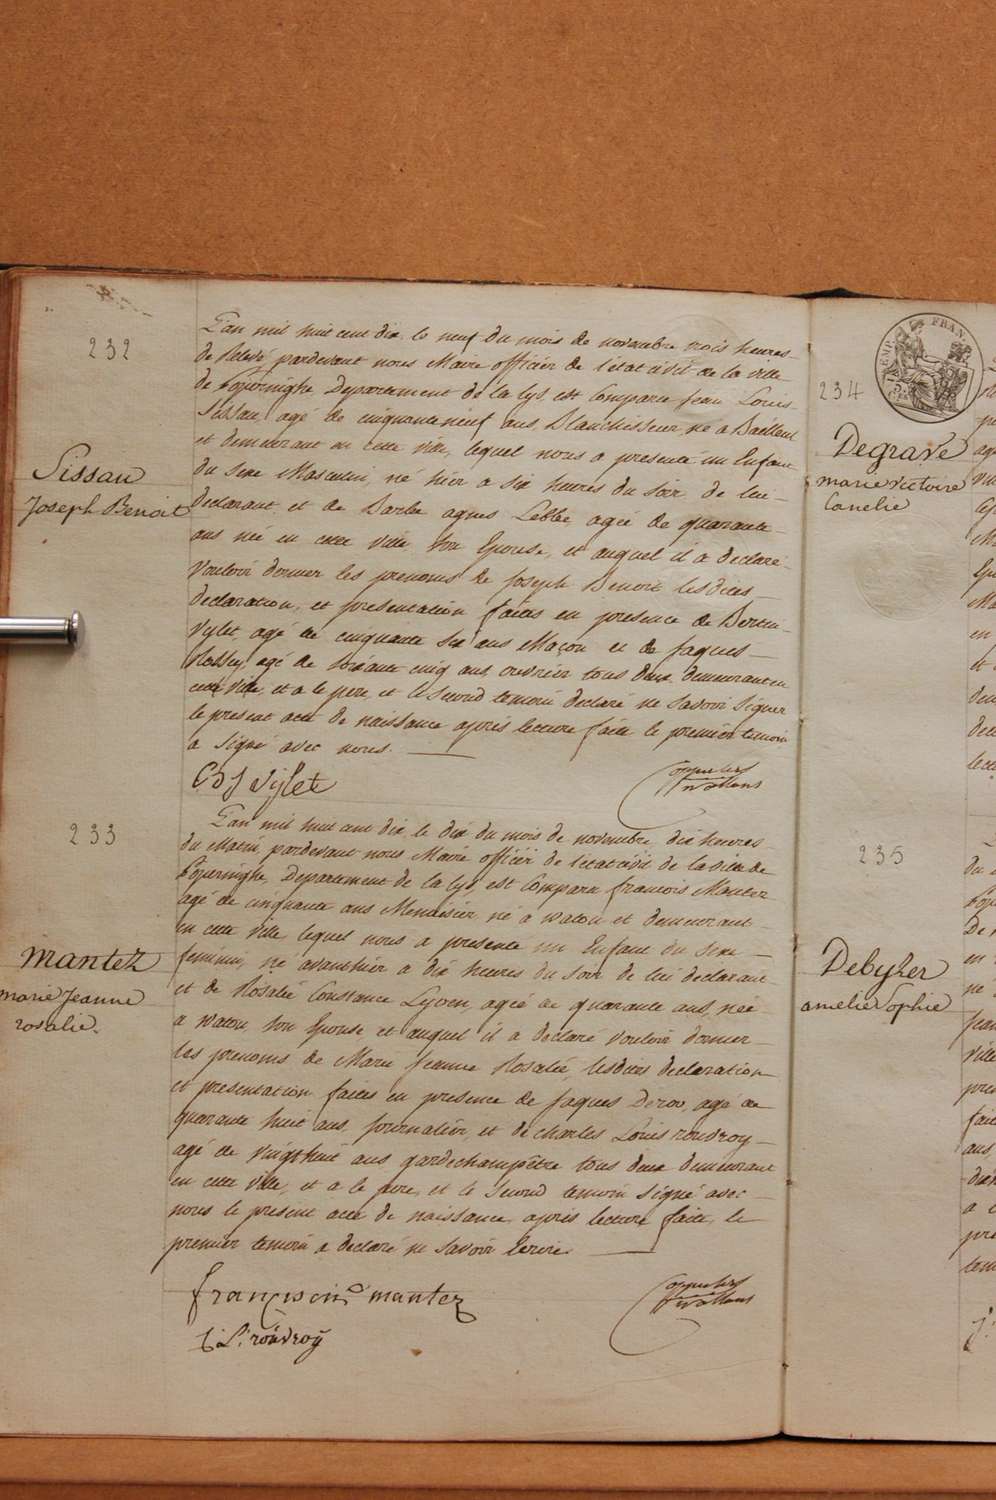 232
Sissau
Joseph Benoit
L'an mil huit cent dix le neuf du mois de novembre trois heures
de relevé pardevant nous Maire officier de l'état civil de la ville
de Poperinghe, Departement de la Lys, est comparu Jean Louis
Sissau, agé de cinquante neuf ans, Blanchisseur, né a Bailleul
et demeurant en cette ville, lequel nous a presenté un Enfant
du sexe Masculin, né hier a six heures du soir de lui
declarant et de Barbe agnes Lebbe, agée de quarante
ans née en cette ville, son Epouse, et auquel il a declaré
vouloir donner les prenoms de Joseph Benoit lesdites
declaration, et presentation faites en presence de Bertin
Vylet, agé de cinquante six ans Maçon et de Jaques
agé de soixante cinq ans, ouvrier tous deux demeurant en
cette ville, et a le pere, et le second temoin declaré ne savoir signer
le present acte de naissance après lecture faite le premier temoin
a signé avec nous.
Vijlet
233
mantez
marie Jeanne
rosalie.
L'an mil huit cent dix, le dix du mois de novembre, dix heures
du Matin, pardevant nous Maire officier de l'état civil de la ville de
Poperinghe, Departement de la Lys, est comparu francois Mantez
agé de cinquante ans Menuisier, né a Watou et demeurant
en cette ville, lequel nous a presenté un Enfant du sexe
feminin, né avanthier a dix heures du soir de lui declarant
et de Rosalie Constance Lyoen, agée de quarante ans, née
a Watou, son Epouse, et auquel il a declaré vouloir donner
les prenoms de Marie Jeanne Rosalie, lesdites declaration
et presentation faites en presence de Jaques Deroo, agé de
quarante huit ans, journalier, et de Charles Louis roudroy
agé de vingt huit ans gardechampêtre tous deux demeurant
en cette ville, et a le pere, et le second temoin signé avec
nous le present acte de naissance, après lecture faite, le
premier temoin a declaré ne savoir ecrire.
mantez
C: L: roudroy
234
Degrave
marie victoire
Canelie
235
Debyser
amelie Sophie